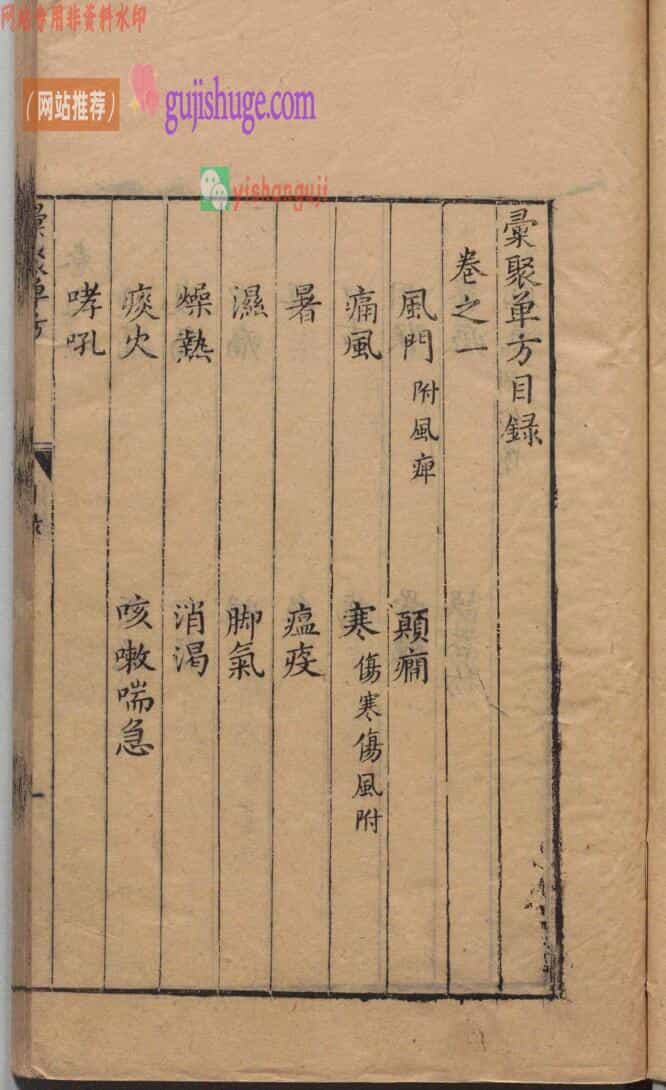 网站专用非资料水印
（网站推荐）
gujishuge.com
yishanguji
彙聚单方目録
卷之一
風門 附風痺 顛癇
痛風 寒 傷寒傷風附
暑 瘟疫
濕 脚氣
燥熱 消渴
痰火 咳嗽喘急
哮吼
彙聚单方
目録
一